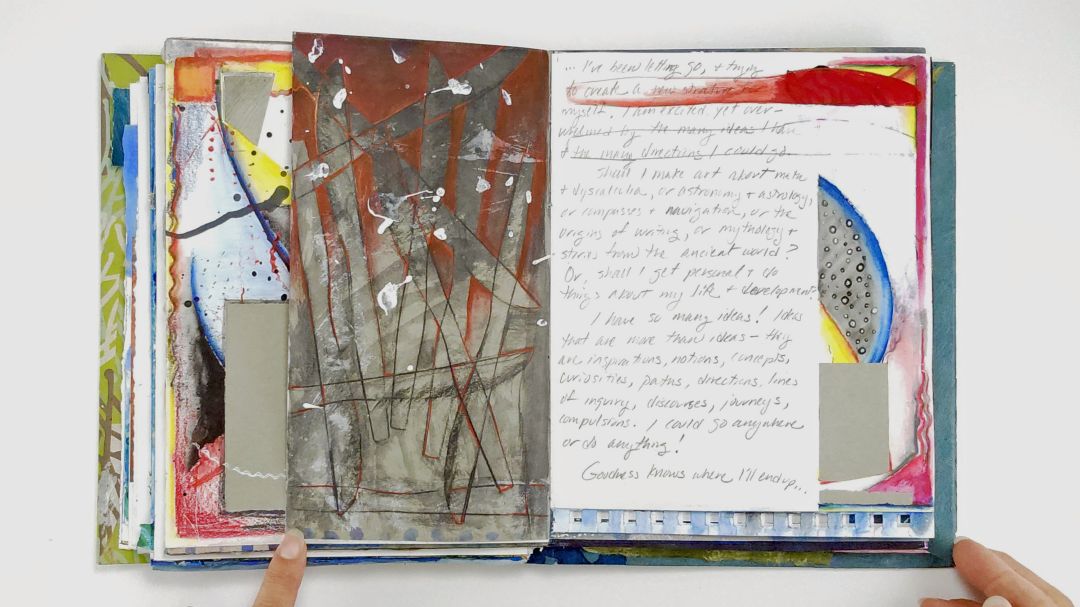 ... I've been letting go, + trying
to create a new structure
myself. I am excited, yet over-
whelmed by the many ideas I have
+ the many directions I could go.
Shall I make art about math
+ dyscalculia, or astronomy + astrology,
or compasses + navigation, or the
origins of writing, or mythology +
stories from the ancient world?
Or, shall I get personal + do
things about my life + development?
I have so many ideas! Ideas
that are more than ideas - they
are inspirations, notions, concepts,
curiosities, paths, directions, lines
of inquiry, discourses, journeys,
compulsions. I could go anywhere
or do anything!
Goodness knows where I'll end up...